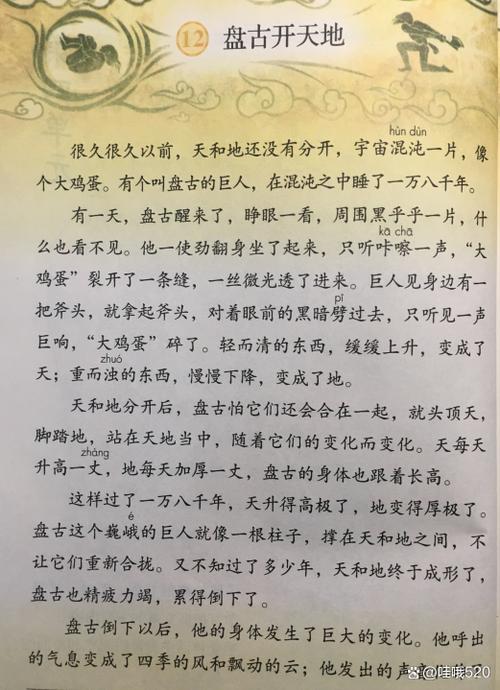 12 盘古开天地
hùn dùn
很久很久以前，天和地还没有分开，宇宙混沌一片，像
个大鸡蛋。有个叫盘古的巨人，在混沌之中睡了一万八千年。
有一天，盘古醒来了，睁眼一看，周围黑乎乎一片，什
kā chā
么也看不见。他一使劲翻身坐了起来，只听咔嚓一声，“大
鸡蛋”裂开了一条缝，一丝微光透了进来。巨人见身边有一
pī
把斧头，就拿起斧头，对着眼前的黑暗劈过去，只听见一声
巨响，“大鸡蛋”碎了。轻而清的东西，缓缓上升，变成了
zhuó
天；重而浊的东西，慢慢下降，变成了地。
天和地分开后，盘古怕它们还会合在一起，就头顶天，
脚踏地，站在天地当中，随着它们的变化而变化。天每天
zhàng
升高一丈，地每天加厚一丈，盘古的身体也跟着长高。
这样过了一万八千年，天升得高极了，地变得厚极了。
é
盘古这个巍峨的巨人就像一根柱子，撑在天和地之间，不
让它们重新合拢。又不知过了多少年，天和地终于成形了，
盘古也精疲力竭，累得倒下了。
盘古倒下以后，他的身体发生了巨大的变化。他呼出
的气息变成了四季的风和飘动的云；他发出的声
@哇哦520